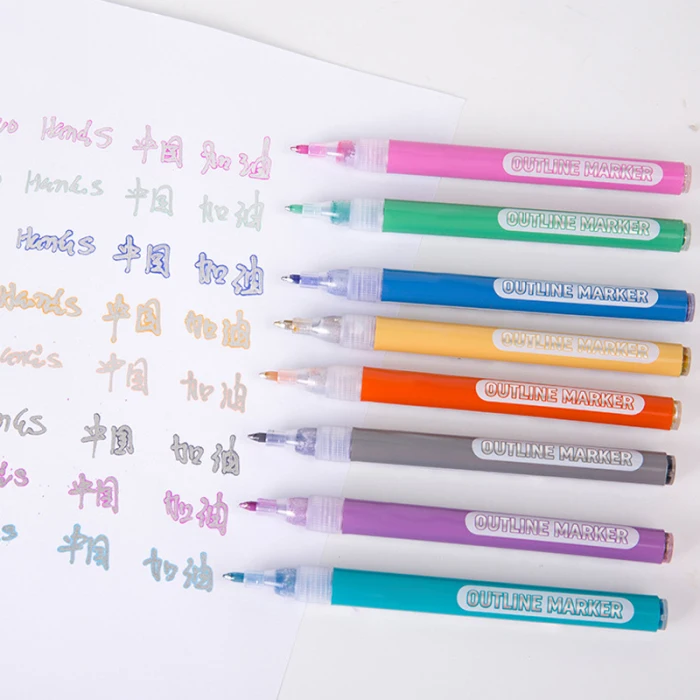 wo Hands 中国 加油 OUTLINE MARKER
Hands 中国 加油 OUTLINE MARKER
Hands 中国 加油 OUTLINE MARKER
Hands 中国 加油 OUTLINE MARKER
Hands 中国 加油 OUTLINE MARKER
中国 加油 OUTLINE MARKER
中国 加油 OUTLINE MARKER
中国 加油 OUTLINE MARKER